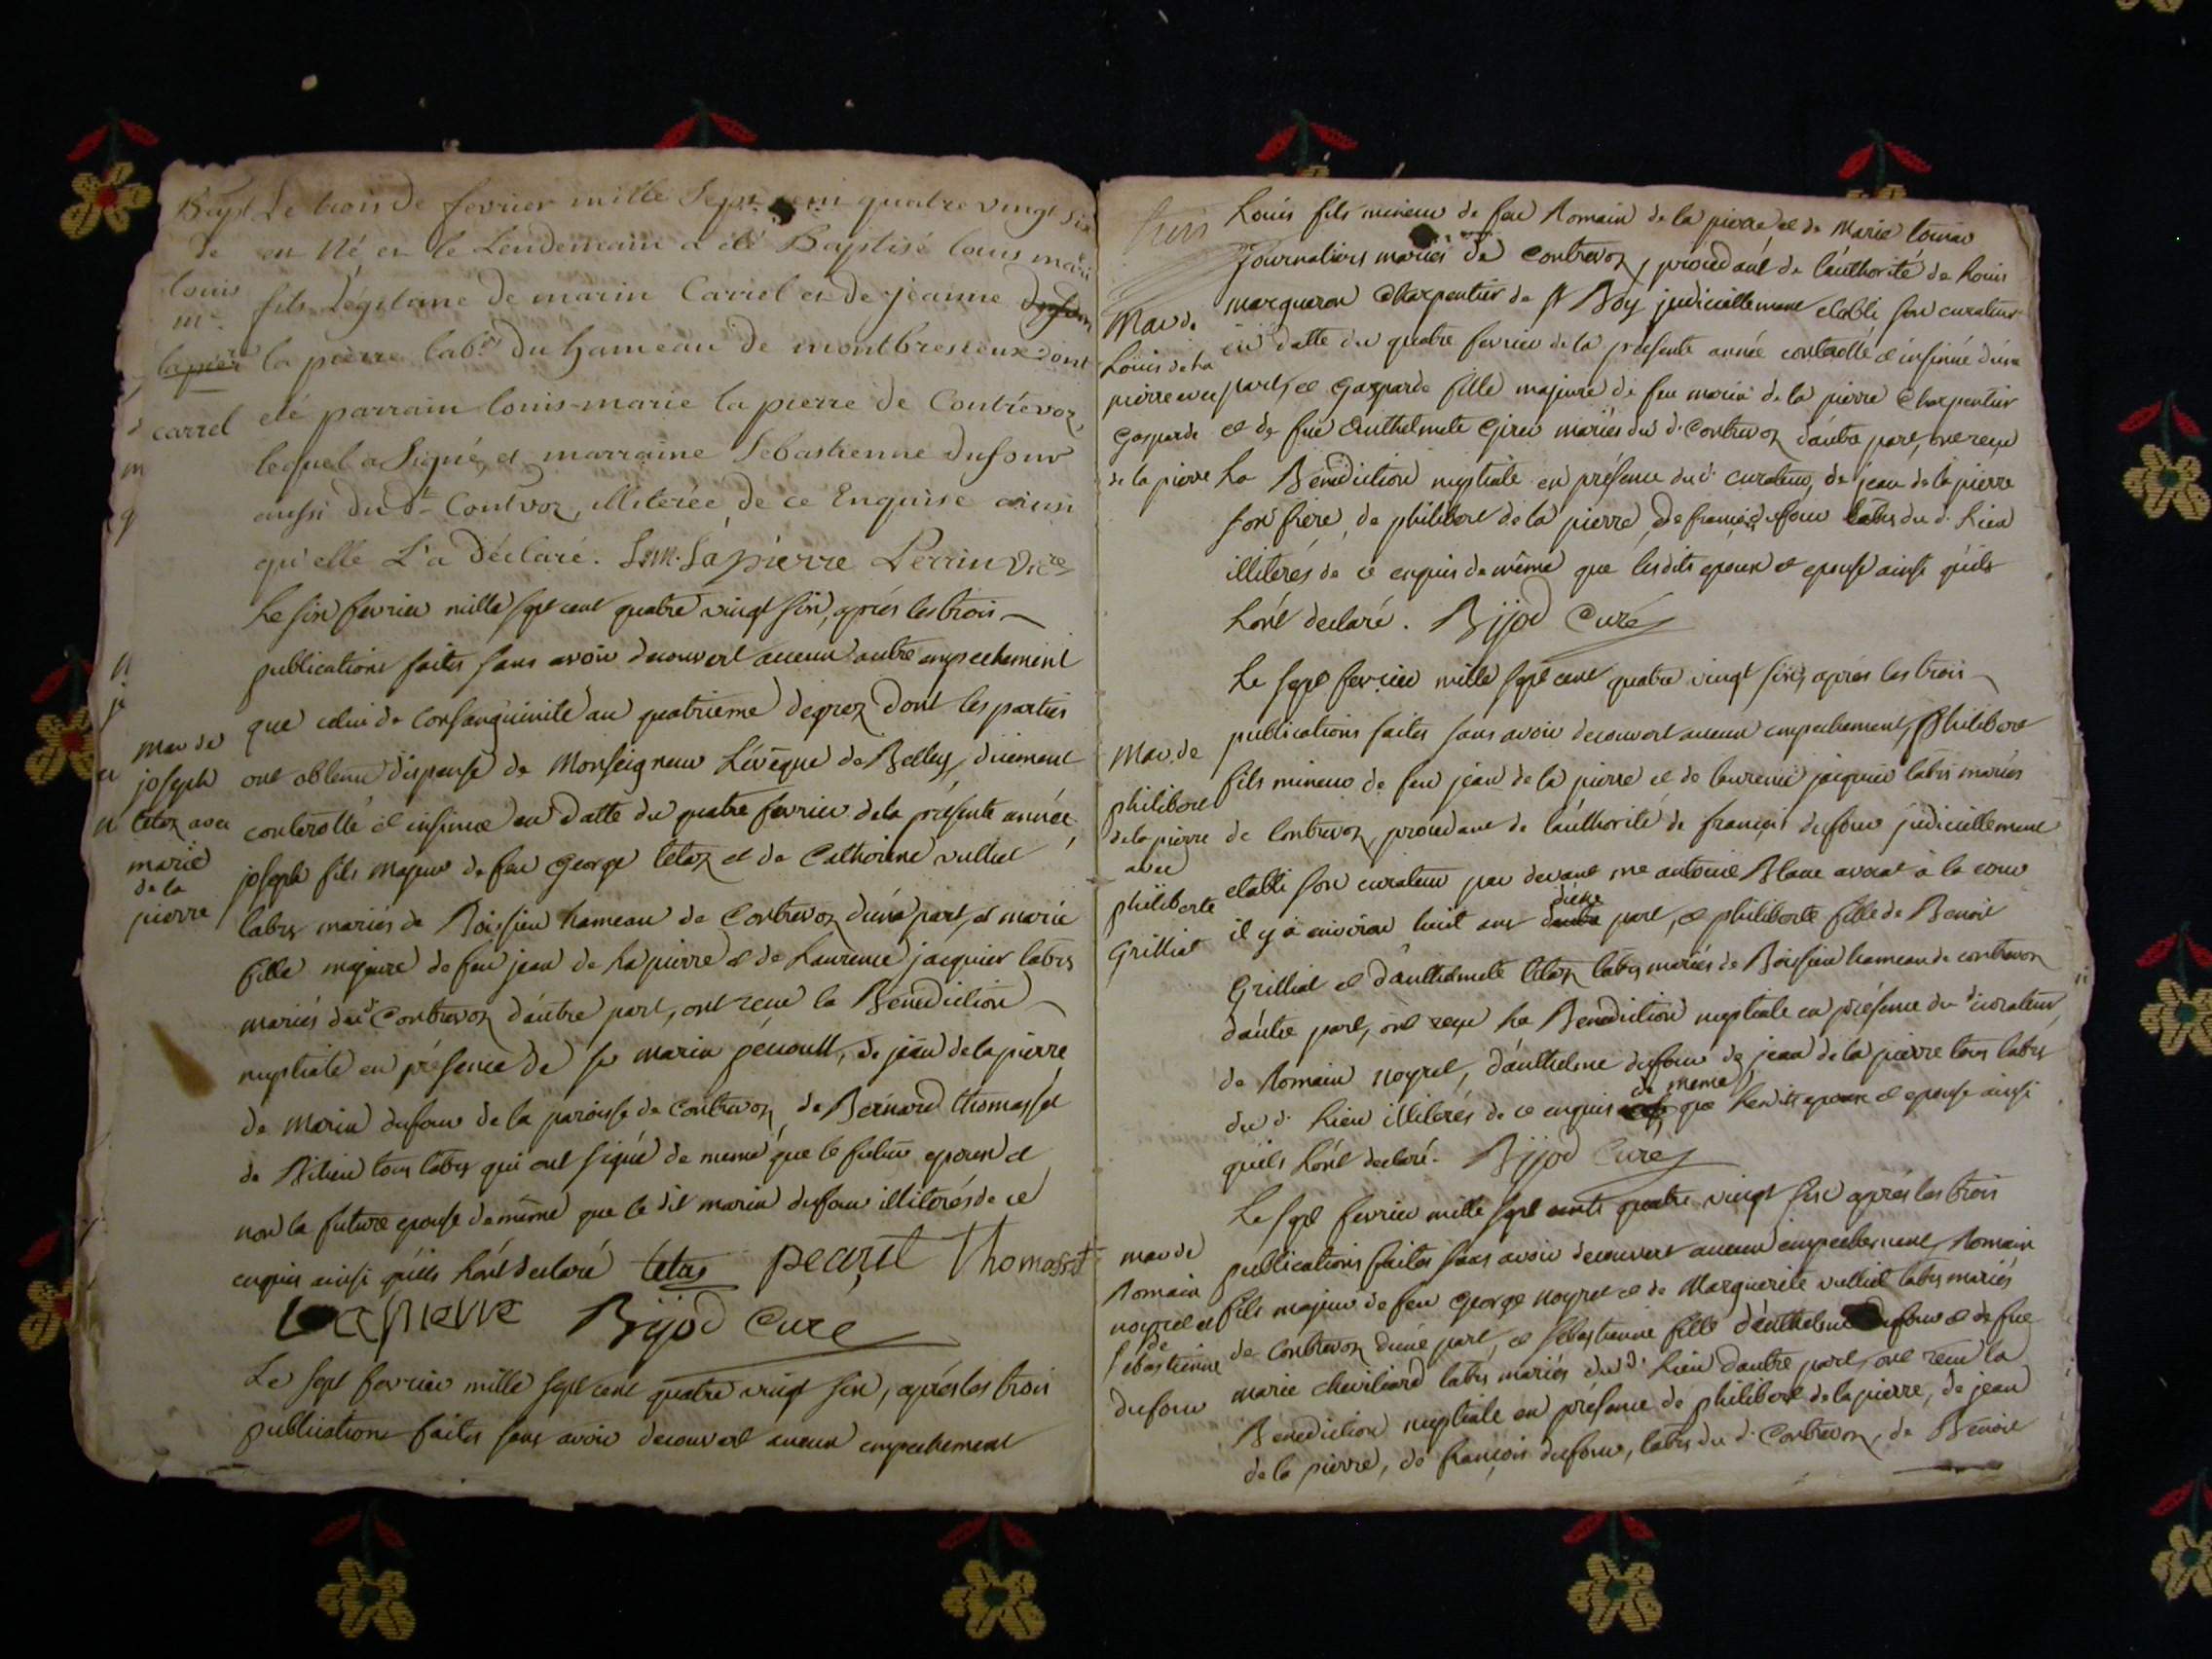 Bapt Le trois de fevrier mille Sept cent quatre vingt six
de en Né et le Lendemain a été Baptisé louis marie
louis
m.e fils Légitime de marin Carrel et de jeanne
lapierre la pierre lab.rs du hameau de montbresieux dont
carrel été parrain louis-marie la pierre de Contrévoz,
lequel a Signé, et marraine Sebastienne dufour
aussi du d.t Contvoz, illiterée de ce Enquise ainsi
qu'elle L'a Déclaré. L.M. Lapierre Perrin Vic.re
Le six fevrier mille sept cent quatre vingt six, aprés les trois
publications faites sans avoir decouvert aucun autre empechement
que celui de Consanguinité au quatrieme degrez dont les parties
ont obtenu dispense de Monseigneur L'évêque de Belley, duement
controllé et insinué en datte du quatre fevrier de la présente année
joseph fils majeur de feu George tetaz et de Catherine vulliet
labrs mariés de Boissieu hameau de Contrevoz d'une part, et marie
fille majeure de feu jean de La pierre et de Laurence jacquier labrs
mariés dud. Contrevoz d'autre part, ont reçu la Bénédiction
nuptiale en présence de sr marin, de jean de la pierre
de Marin dufour de la paroisse de Contrevoz, de Bernard thomasset
de tous labrs qui ont signé de meme que le futur epoux et
non la future epouse de même que le dit marin dufour illiterés de ce
enquis ainsi qu'ils l'ont declaré tetas Thomasset
mar de
joseph
tetaz avec
marie
de la
pierre
Lapierre Bijod Curé
Le sept fevrier mille sept cent quatre vingt six, aprés les trois
publications faites sans avoir decouvert aucun empechement
Louis fils mineur de feu Romain de la pierre et de Marie
journaliers mariés de Contrevoz, procedant de l'authorité de Louis
margueron Charpentier de St Boy judiciellement etabli son curateur
en datte du quatre fevrier de la présente année controllé et insinué d'une
part, et Gasparde fille majeure de feu marin de la pierre Charpentier
et de feüe Anthelmete Giren mariés du d. Contrevoz d'autre part, ont reçu
La Bénédiction nuptiale en présence du d. curateur, de jean de la pierre
son frère, de philibert de la pierre, de françois dufour labrs du d. Lieu
illiterés de ce enquis de même que lesdits epoux et epouse ainsi qu'ils
L'ont declaré. Bijod Curé
Mar de
Louis de La
pierre avec
Gasparde
de la pierre
Le sept fevrier mille sept cent quatre vingt six, aprés les trois
publications faites sans avoir decouvert aucun empechement, Philibert
fils mineur de feu jean de la pierre et de laurence jacquier labrs mariés
de Contrevoz, procedant de l'authorité de françois dufour judiciellement
etabli son curateur par devant me antoine Blanc avocat à la cour
il y a environ huit ans d'une part, et philiberte fille de Benoit
Grilliat et d'anthelmete tetaz labrs mariés de Boissieu hameau de contrevoz
d'autre part, ont reçu La Bénédiction nuptiale en présence du d. curateur,
de Romain noyrel, d'anthelme dufour de jean de la pierre tous labrs
du d. Lieu illiterés de ce enquis de meme que Lesdits epoux et epouse ainsi
qu'ils L'ont declaré. Bijod Curé
Mar. de
philibert
de la pierre
avec
philiberte
Grilliat
Le sept fevrier mille sept cents quatre vingt six aprés les trois
publications faites sans avoir decouvert aucun empechement, Romain
fils majeur de feu George noyrel et de Marguerite vulliet labrs mariés
de Contrevoz d'une part, et sebastienne fille d'anthelme dufour et de feüe
marie chevilliard labrs mariés du d. Lieu d'autre part, ont reçu la
Bénédiction nuptiale en présence de philibert de la pierre, de jean
de la pierre, de françois dufour, labrs du d. Contrevoz, de Benoit
mar de
Romain
noyrel et
de
sebastienne
dufour